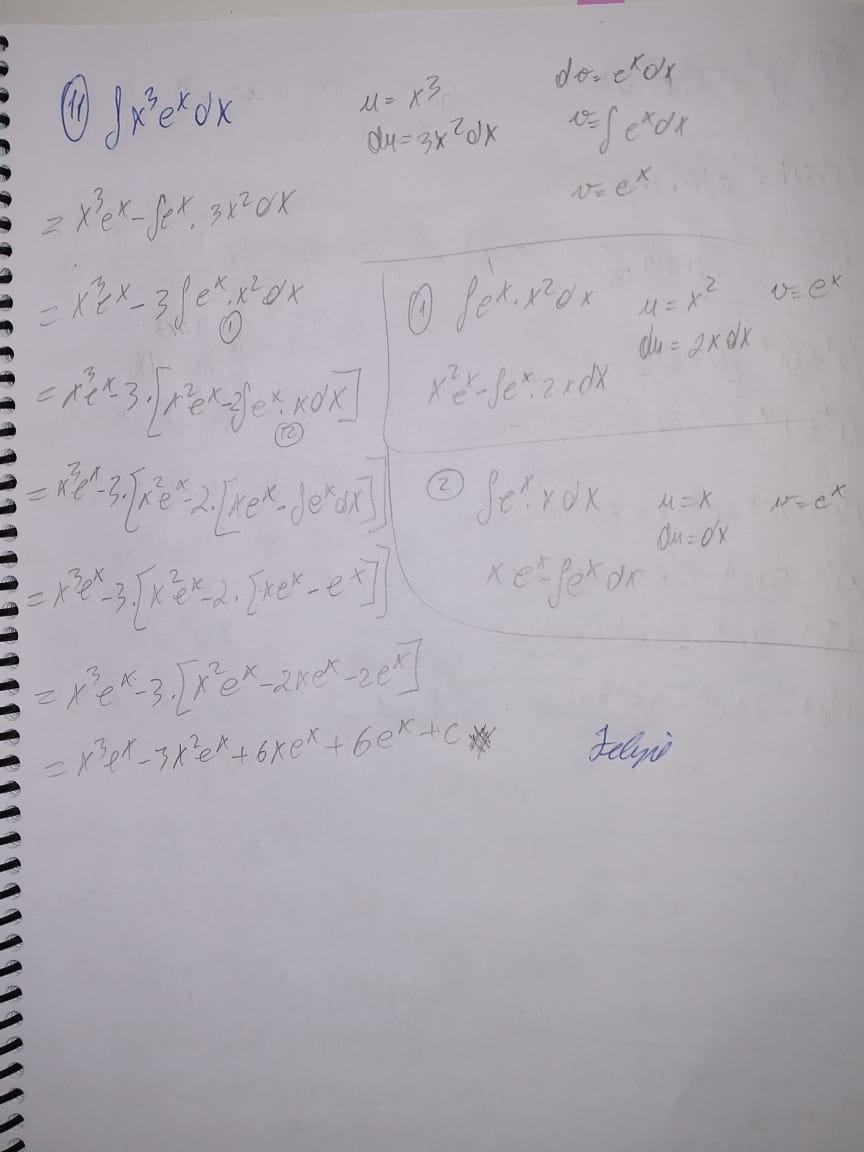 ⑪ ∫x³eˣdx
u = x³
du = 3x²dx
dv = eˣdx
v = ∫eˣdx
v = eˣ
= x³eˣ - ∫eˣ. 3x²dx
= x³eˣ - 3∫eˣ.x²dx
①
= x³eˣ - 3.[x²eˣ - 2∫eˣ.xdx]
②
= x³eˣ - 3.[x²eˣ - 2.[xeˣ - ∫eˣdx]]
= x³eˣ - 3.[x²eˣ - 2.[xeˣ - eˣ]]
= x³eˣ - 3.[x²eˣ - 2xeˣ - 2eˣ]
= x³eˣ - 3x²eˣ + 6xeˣ + 6eˣ + c
① ∫eˣ.x²dx u = x² v = eˣ
du = 2xdx
x²eˣ - ∫eˣ.2xdx
② ∫eˣ.xdx u = x v = eˣ
du = dx
xeˣ - ∫eˣdx
Felipe